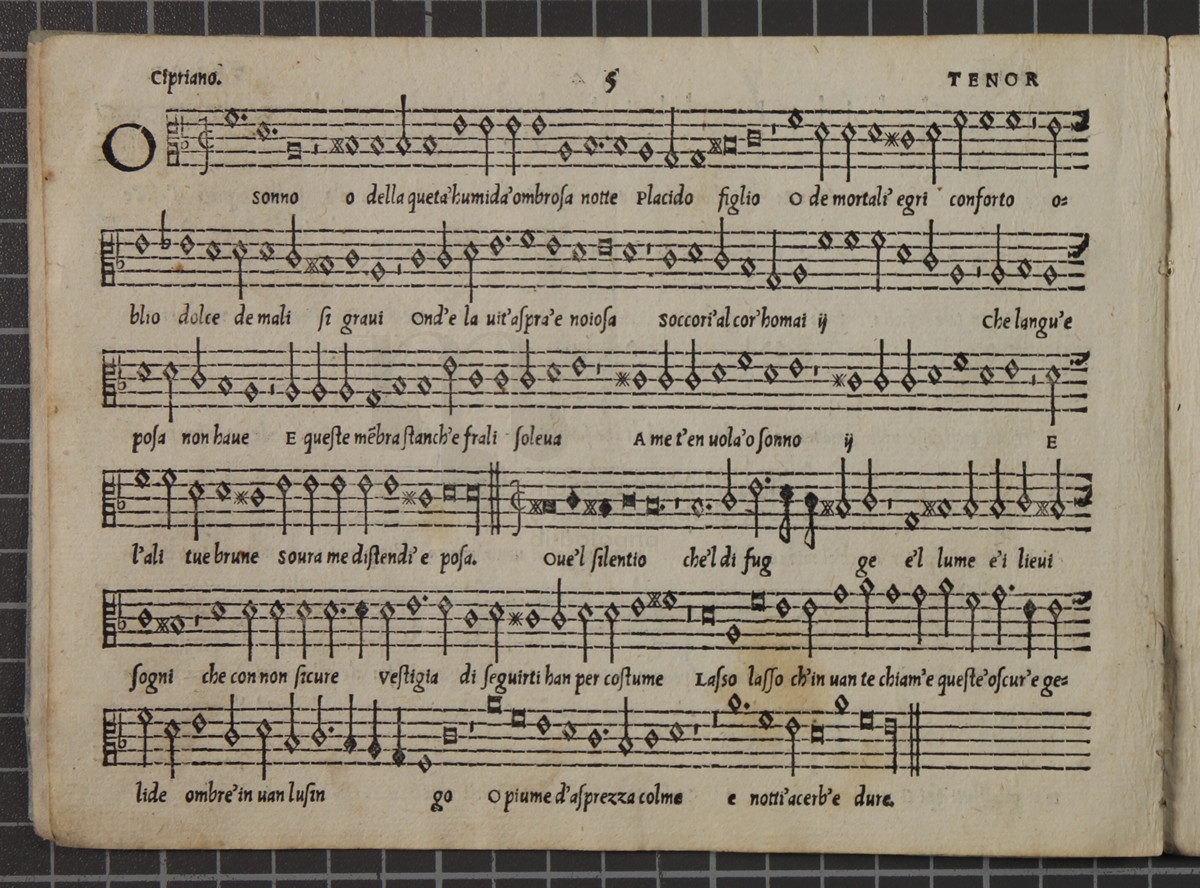 Cipriano. 5 TENOR
O
sonno o della queta'humida'ombrosa notte Placido figlio O de mortali' egri conforto o=
blio dolce de mali si graui Ond'e la uit'aspra'e noiosa soccori'al cor'homai ij Che langu'e
posa non haue E queste mēbra stanch'e frali soleua A me t'en uola'o sonno ij E
l'ali tue brune soura me distendi'e posa. Oue'l silentio che'l di fug ge e'l lume e'i lieui
sogni che con non sicure vestigia di seguirti han per costume Lasso lasso ch'in uan te chiam'e queste'oscur'e ge=
lide ombre'in uan lusin go O piume d'asprezza colme e notti'acerb'e dure.